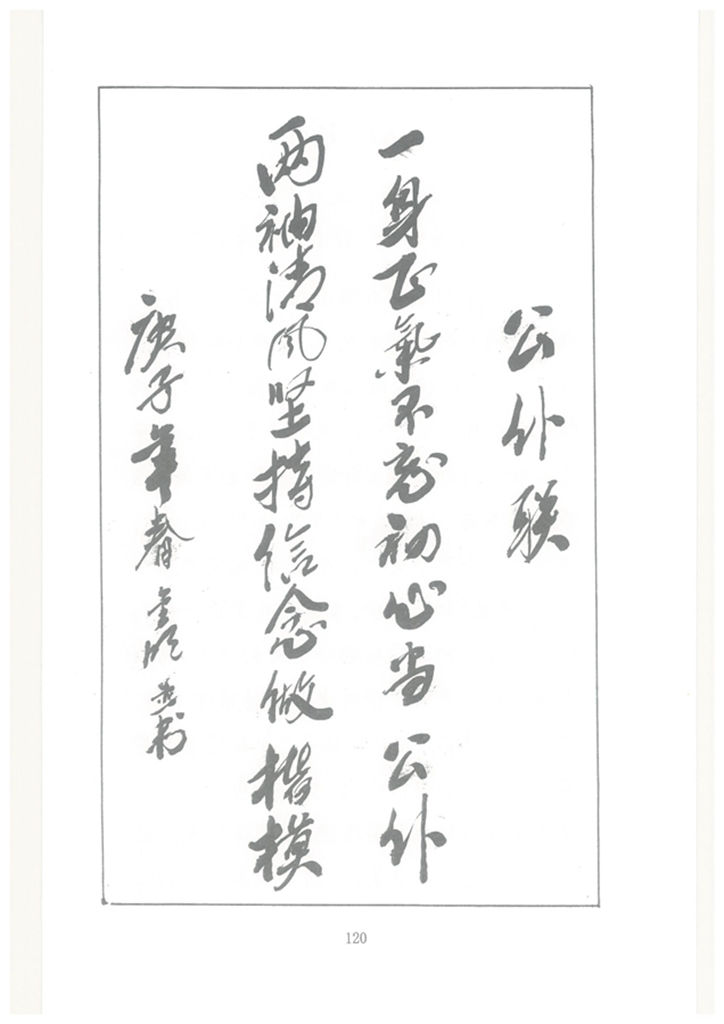 公仆联
一身正氣不忘初心当公仆
两袖清风坚持信念做楷模
庚子年春
书
120